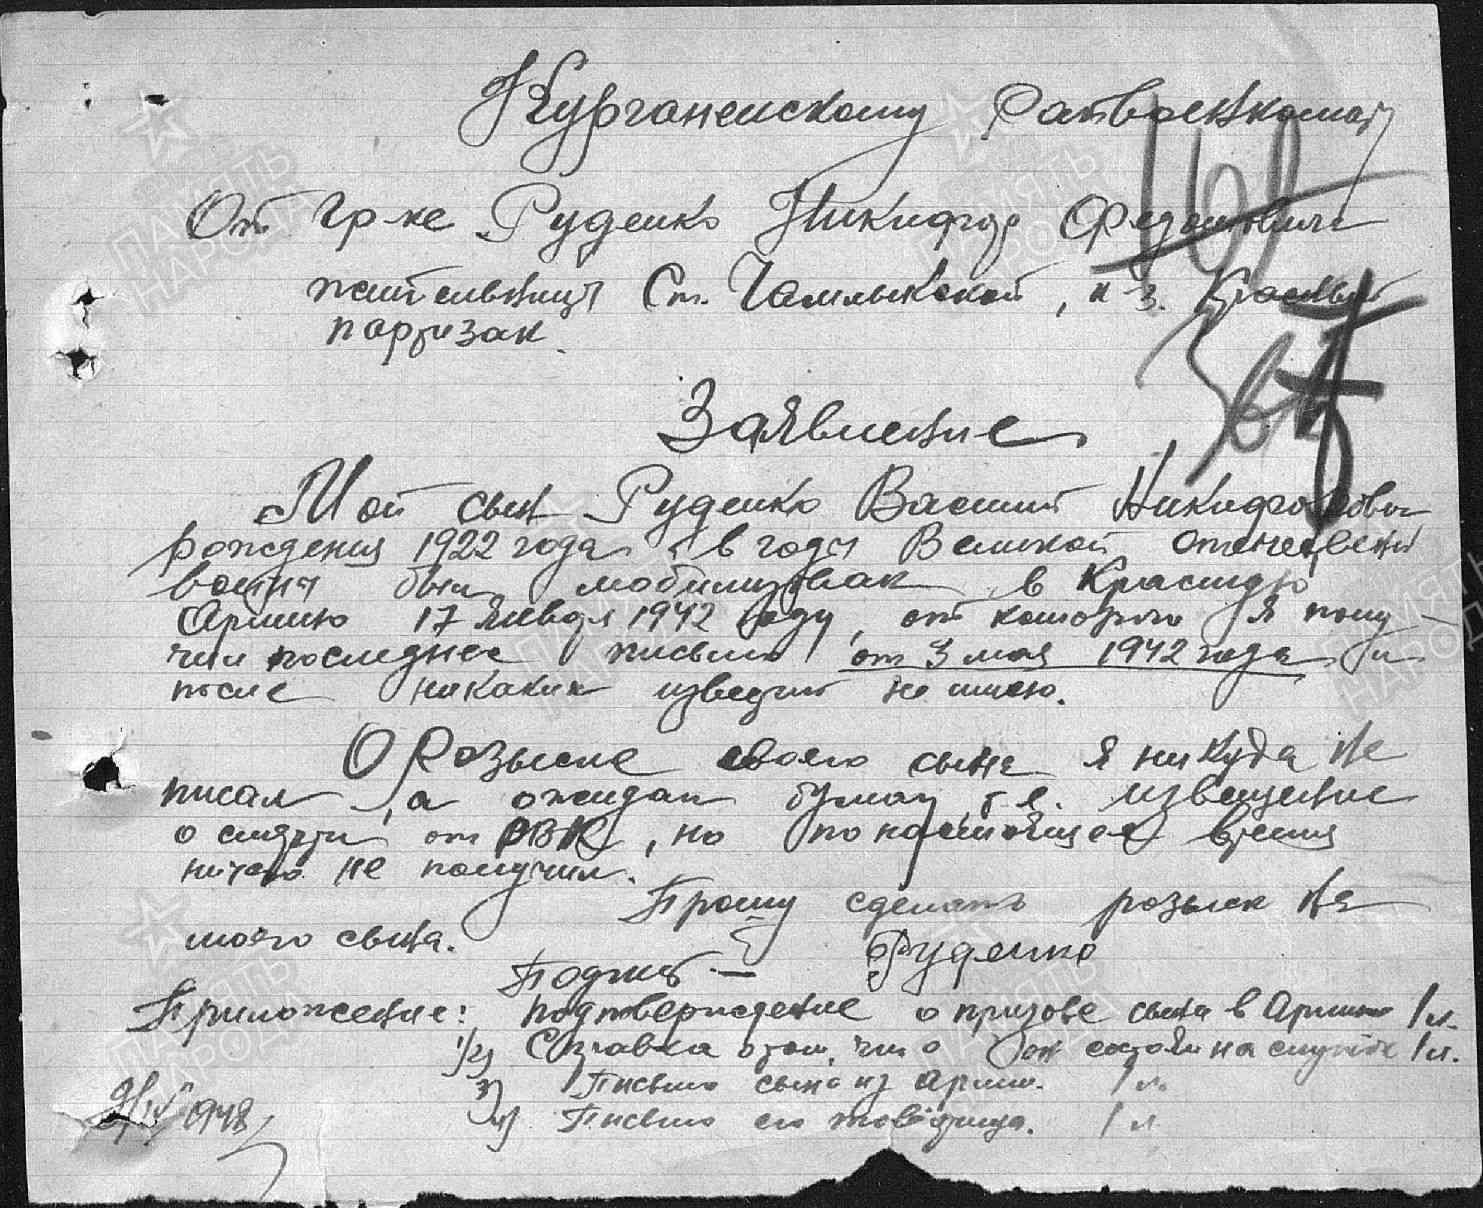 Курганенскому Райвоенкомату
От гр-ке Руденко Никифор Федоровича
жительницы Ст. Чамлыкской, к-з. Красный
партизан.
Заявление
Мой сын Руденко Василий Никифорови
рождения 1922 года, в годы Великой Отечествен
войны был мобилизован в Красную
Армию 17 января 1942 году, от которого я полу-
чил последнее письмо от 3 мая 1942 года и
после никаких известий не имею.
О розыске своего сына я никуда не
писал, а ожидал бумагу, т.е. извещение
о смерти от РВК, но по настоящее время
ничего не получил.
Прошу сделать розыск на
моего сына.
Подпись — Руденко
Приложение: подтверждение о призове сына в Армию 1 л.
2) Справка о том, что он состоял на службе 1 л.
3) Письмо сына из Армии. 1 л.
4) Письмо его товарища. 1 л.
1948
ПАМЯТЬ НАРОДА